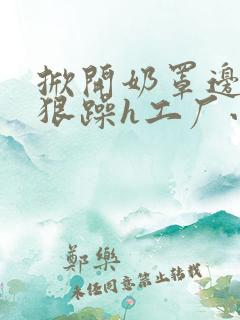 掀開奶罩邊
狠躁h工厂、
鄭樂
未经同意禁止转载